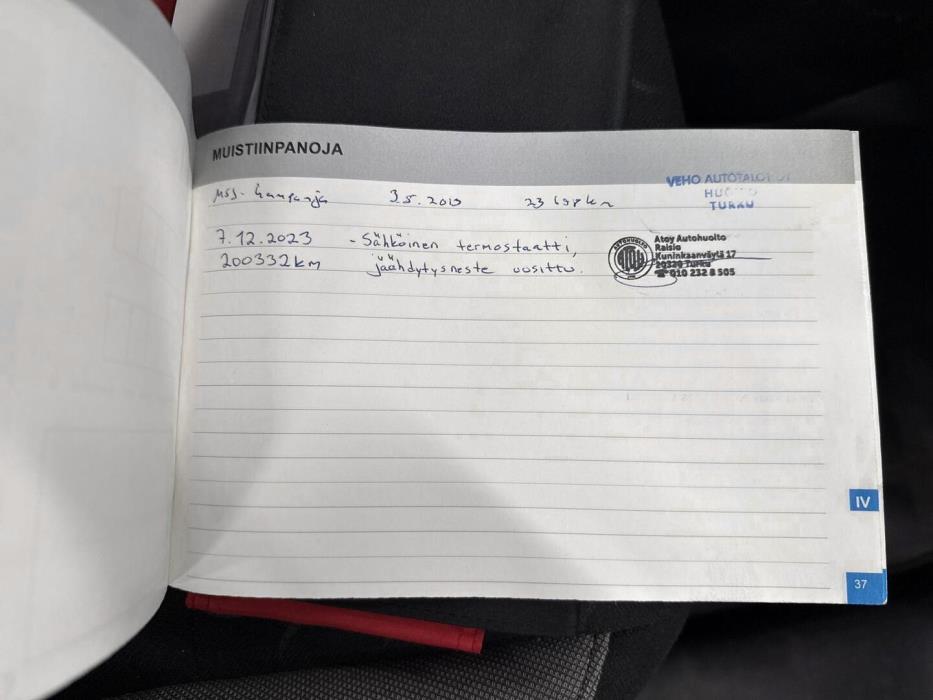 MUISTIINPANOJA
VEHO AUTOTALOT OY
HUOLTO
TURKU
3.5. 2013
7.12.2023 - Sähköinen termostaatti,
200332km jäähdytysneste uusittu.
AUTOHUOLTO
Atoy Autohuolto
Raisio
Kuninkaanväylä 17
20320 Turku
☎ 010 232 8 505
IV
37